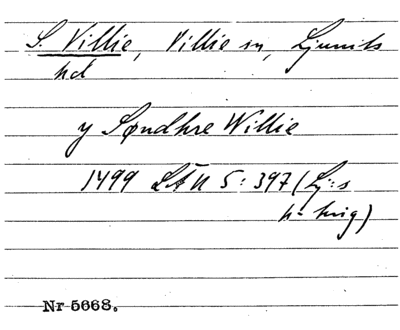 S. Villie, Villie sn, Ljunits
hd
y Søndhre Willie
1499 LÄU 5:397 (Lj:s
h- krig)
Nr 5668.